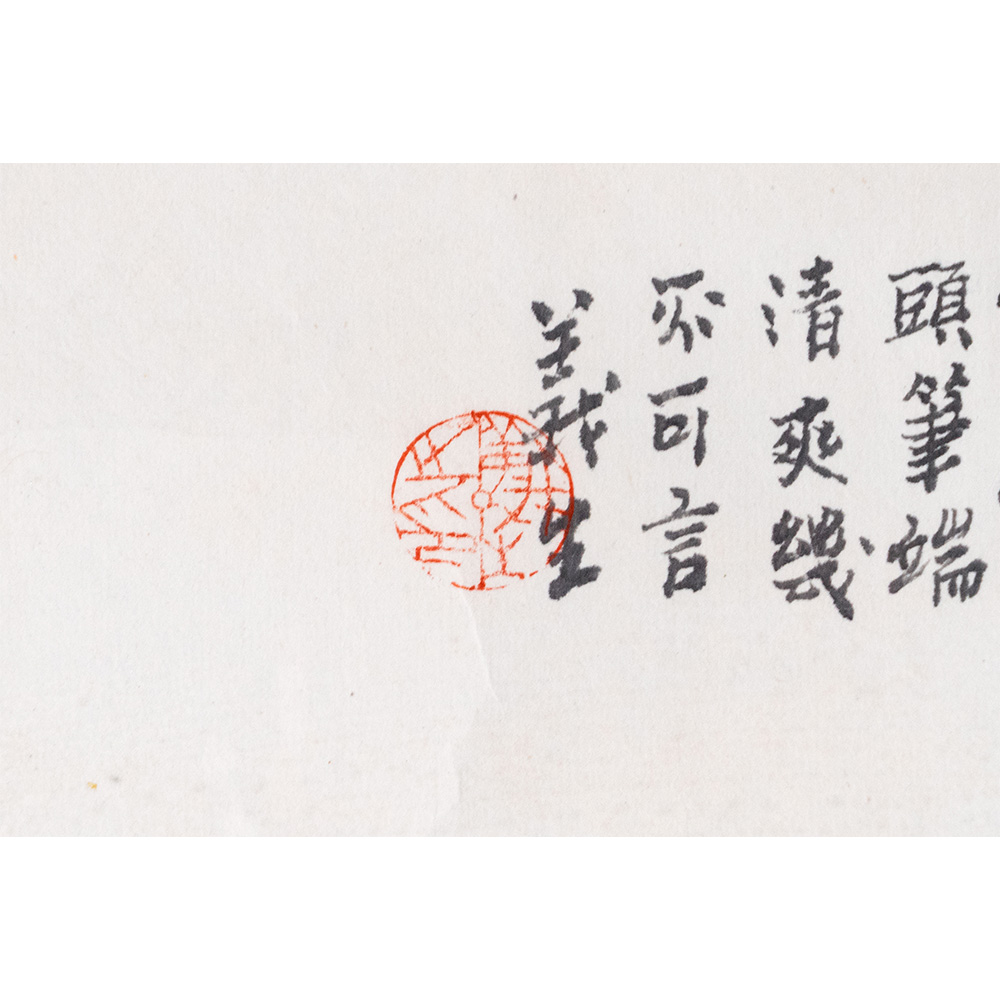 頭筆端
清爽幾
不可言
義生